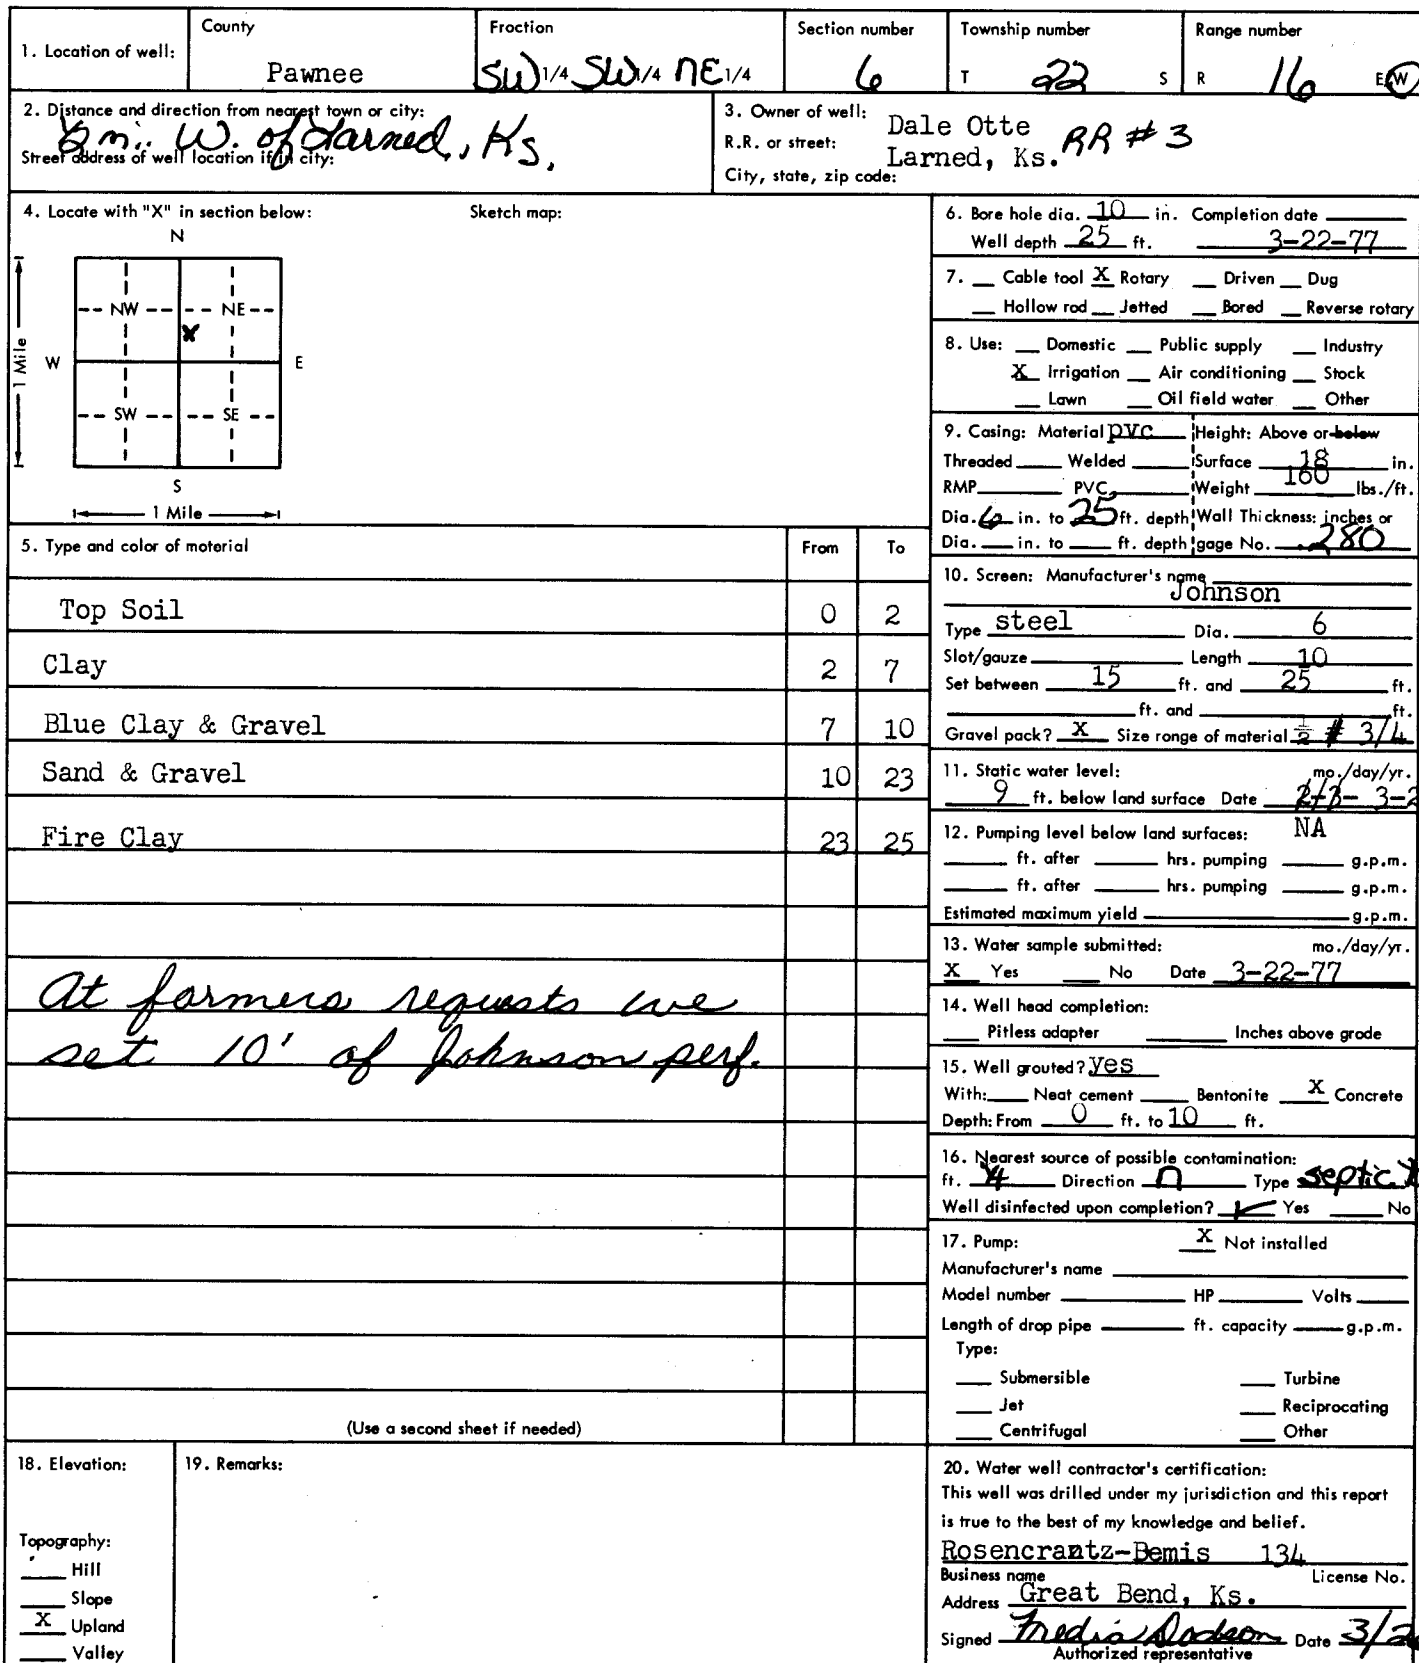 1. Location of well: County Pawnee Fraction SW 1/4 SW 1/4 NE 1/4 Section number 6 Township number T 22 S Range number R 16 E W
2. Distance and direction from nearest town or city: mi. W. of Larned, Ks.
Street address of well location if in city:
3. Owner of well: Dale Otte
R.R. or street: Larned, Ks. RR #3
City, state, zip code:
4. Locate with "X" in section below: Sketch map:
N
NW NE
X
W E
1 Mile
SW SE
S
1 Mile
5. Type and color of material From To
Top Soil 0 2
Clay 2 7
Blue Clay & Gravel 7 10
Sand & Gravel 10 23
Fire Clay 23 25
At farmers requests we
set 10' of Johnson perf.
(Use a second sheet if needed)
6. Bore hole dia. 10 in. Completion date
Well depth 25 ft. 3-22-77
7. Cable tool X Rotary Driven Dug
Hollow rod Jetted Bored Reverse rotary
8. Use: Domestic Public supply Industry
X Irrigation Air conditioning Stock
Lawn Oil field water Other
9. Casing: Material pvc Height: Above or below
Threaded Welded Surface 18 in.
RMP PVC Weight 160 lbs./ft.
Dia. 6 in. to 25 ft. depth Wall Thickness: inches or
Dia. in. to ft. depth gage No. .280
10. Screen: Manufacturer's name
Johnson
Type steel Dia. 6
Slot/gauze Length 10
Set between 15 ft. and 25 ft.
ft. and ft.
Gravel pack? X Size range of material 1/2 # 3/4
11. Static water level: mo./day/yr.
9 ft. below land surface Date 3-2
12. Pumping level below land surfaces: NA
ft. after hrs. pumping g.p.m.
ft. after hrs. pumping g.p.m.
Estimated maximum yield g.p.m.
13. Water sample submitted: mo./day/yr.
X Yes No Date 3-22-77
14. Well head completion:
Pitless adapter Inches above grade
15. Well grouted? yes
With: Neat cement Bentonite X Concrete
Depth: From 0 ft. to 10 ft.
16. Nearest source of possible contamination:
ft. Direction n Type septic
Well disinfected upon completion? ✓ Yes No
17. Pump: X Not installed
Manufacturer's name
Model number HP Volts
Length of drop pipe ft. capacity g.p.m.
Type:
Submersible Turbine
Jet Reciprocating
Centrifugal Other
18. Elevation:
Topography:
Hill
Slope
X Upland
Valley
19. Remarks:
20. Water well contractor's certification:
This well was drilled under my jurisdiction and this report
is true to the best of my knowledge and belief.
Rosencrantz-Bemis 134
Business name License No.
Address Great Bend, Ks.
Signed Dodson Date 3/2
Authorized representative